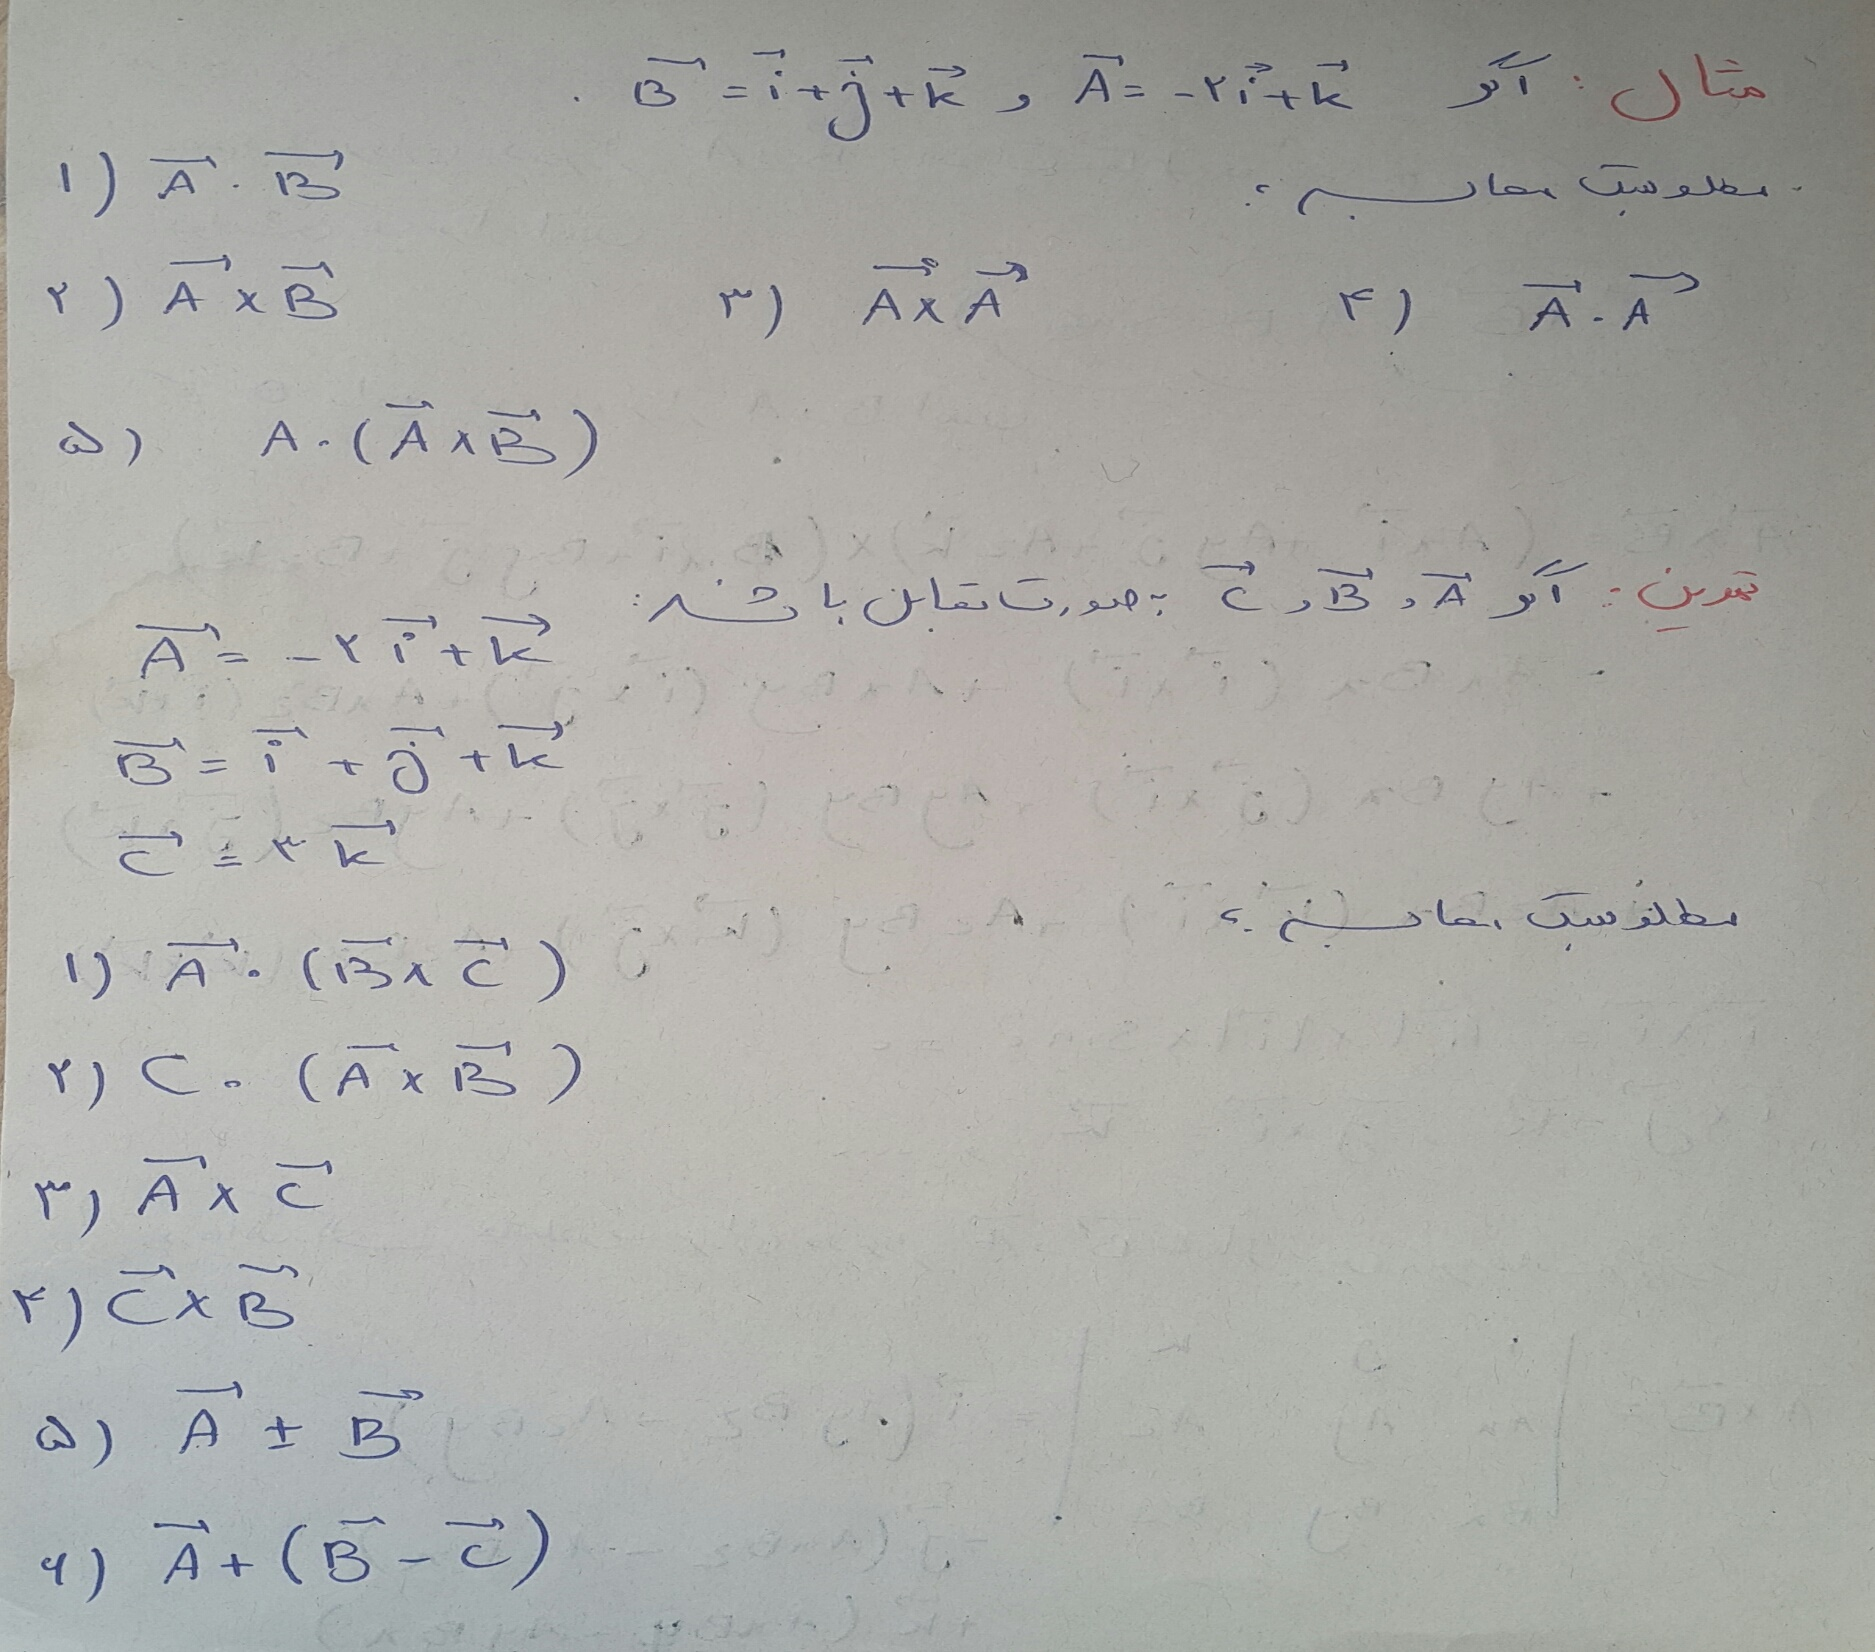 مثال: اگر A⃗ = -۲i⃗ + k⃗ و B⃗ = i⃗ + j⃗ + k⃗ .
مطلوبست محاسبه؛
۱) A⃗ . B⃗
۲) A⃗ × B⃗ ۳) A⃗ × A⃗ ۴) A⃗ . A⃗
۵) A . (A⃗ × B⃗)
تمرین: اگر A⃗ و B⃗ و C⃗ بصورت مقابل باشند:
A⃗ = -۲i⃗ + k⃗
B⃗ = i⃗ + j⃗ + k⃗
C⃗ = ۳k⃗
مطلوبست محاسبه؛
۱) A⃗ . (B⃗ × C⃗)
۲) C . (A⃗ × B⃗)
۳) A⃗ × C⃗
۴) C⃗ × B⃗
۵) A⃗ ± B⃗
۶) A⃗ + (B⃗ - C⃗)